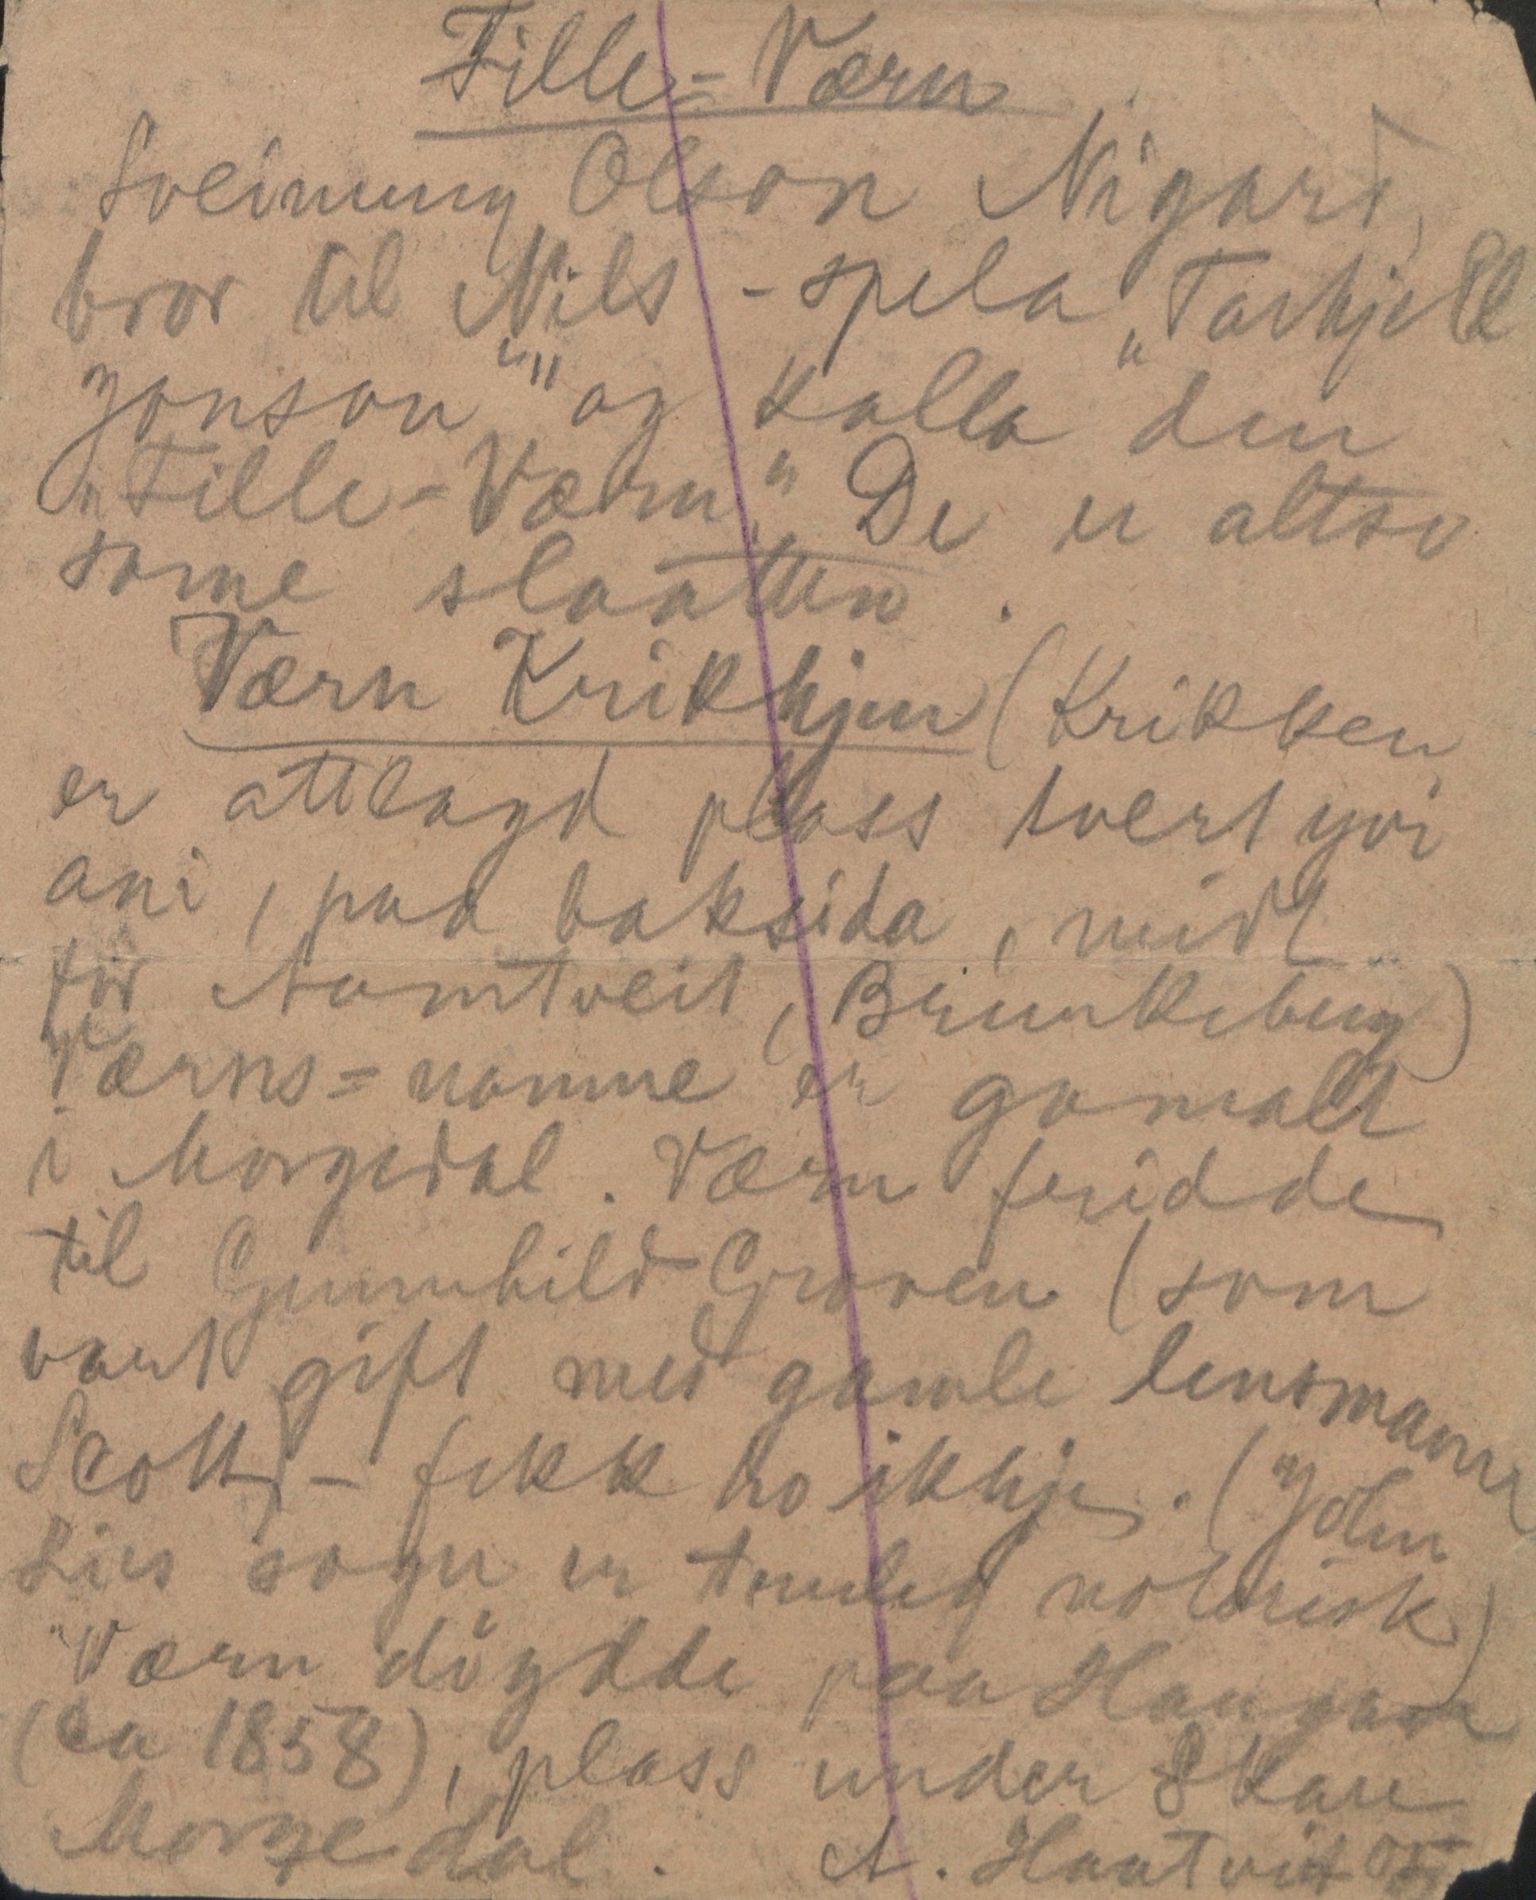 Fille=Værn
Sveinung Olson Nigard,
bror til Nils - spela „Tarkjell
Jonson"" og kalla den
„Fille-Værn." De er altso
same slaatten.
Værn Krikhjen (Krikken
er attlagd plass tvert yvi
ani, paa baksida, midt
for Aamtveit, Brunkeberg)
Værns=namne er gamalt
i Morgedal. Værn fridde
til Gunnhild Groven (som
vart gift med gamle lensmann
Scott) - fekk ho ikkje. (John
Lies sogn er temleg notorisk)
Værn döydde paa Haugann
(ca 1858), plass under Skare
Morgedal. A. Haatveit